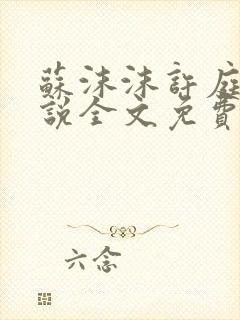 蘇沫沫許庭
說全文免費
六念